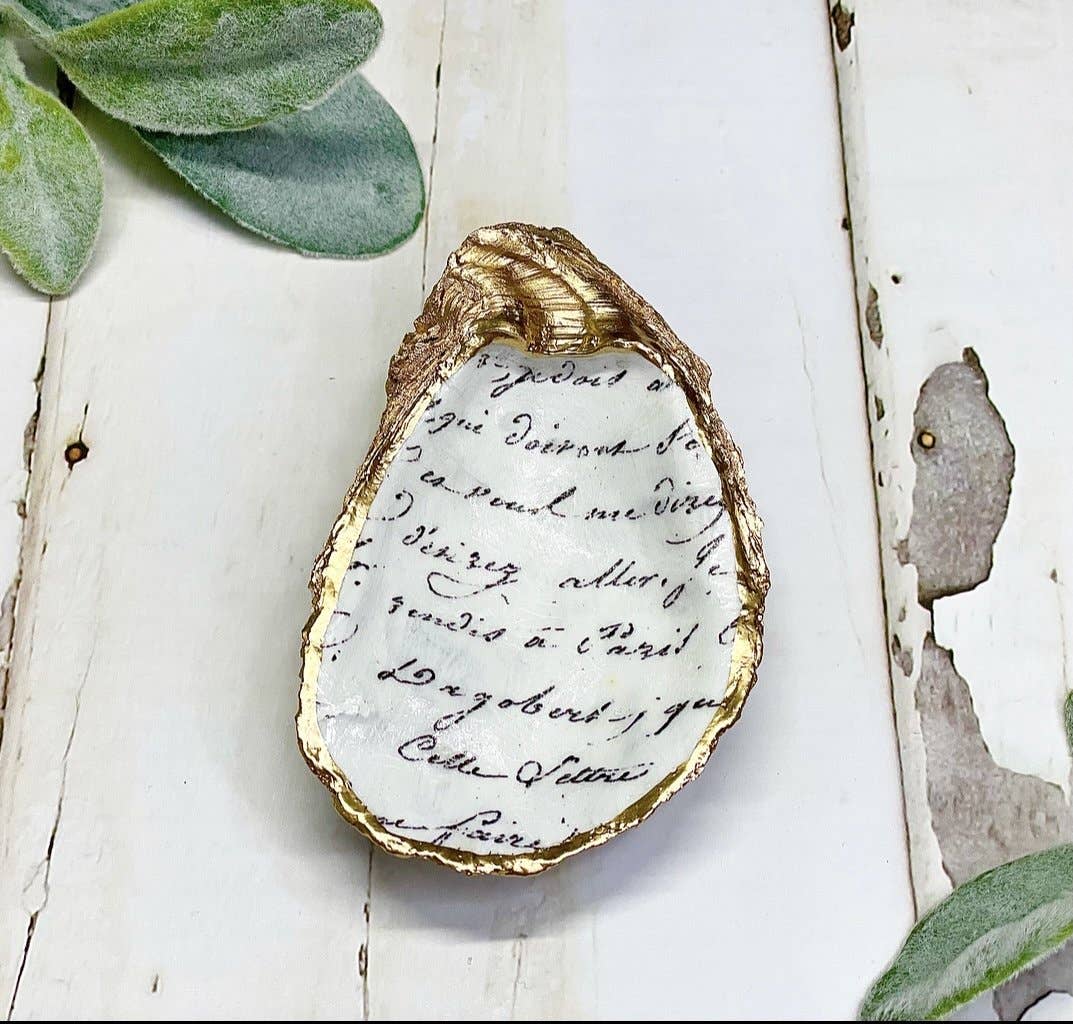 je dois a
qui doivent Se
me dizez
d'erizez aller. Je
rendis à Paris
Dagobert j qu
Celle Lettre
faire